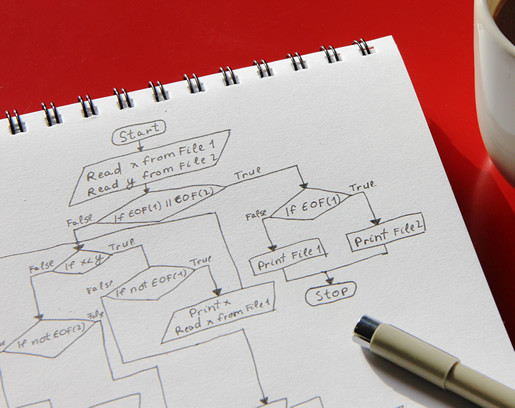 Start
Read x from File 1
Read y from File 2
If EOF(1) || EOF(2)
True
False
If EOF(1)
True
False
Print File 1
Print File 2
Stop
If x<y
True
False
If not EOF(1)
True
False
Print x
Read x from File 1
If not EOF(2)
False